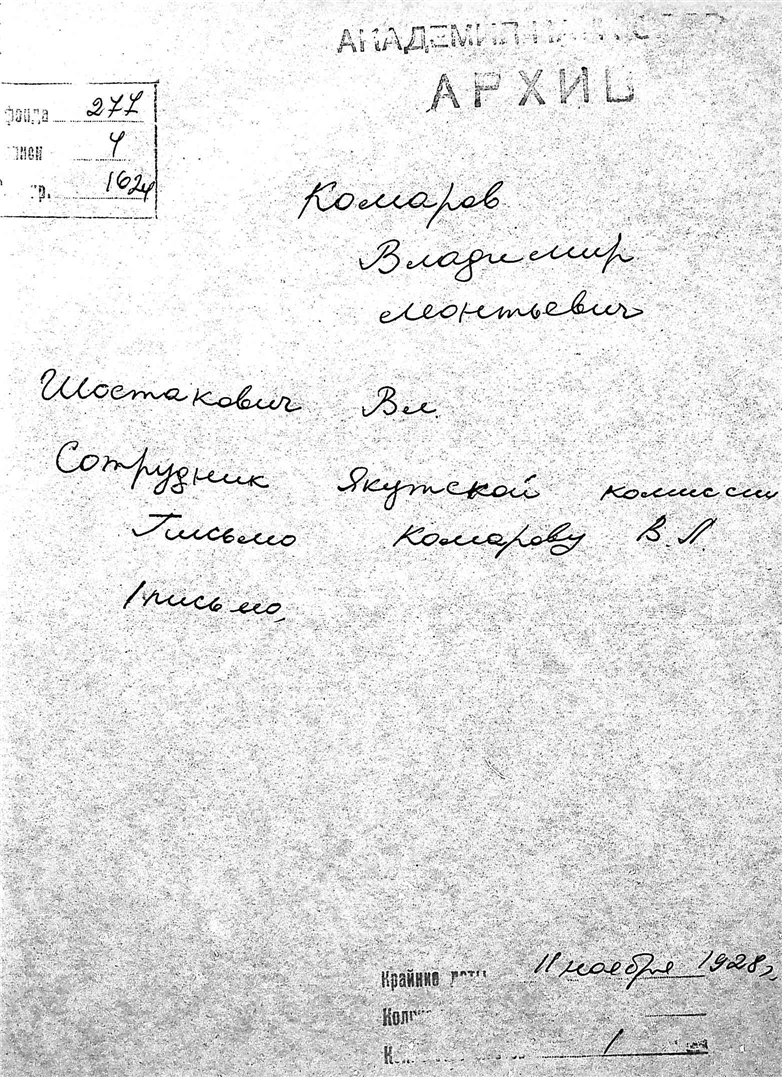 АКАДЕМИЯ НАУК СССР
АРХИВ
фонда 277
описи 4
хр. 1624
Комаров
Владимир
Леонтьевич
Шостакович Вл.
Сотрудник Якутской комиссии
Письмо Комарову В.Л.
1 письмо,
Крайние даты 11 ноября 1928 г.
1